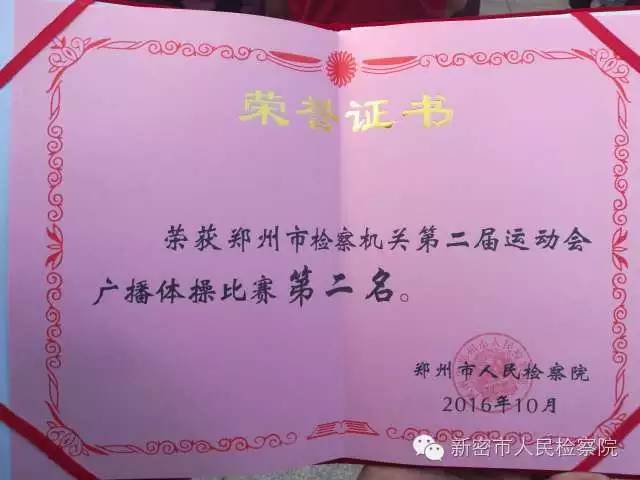 荣誉证书
荣获郑州市检察机关第二届运动会
广播体操比赛第二名。
郑州市人民检察院
2016年10月
新密市人民检察院